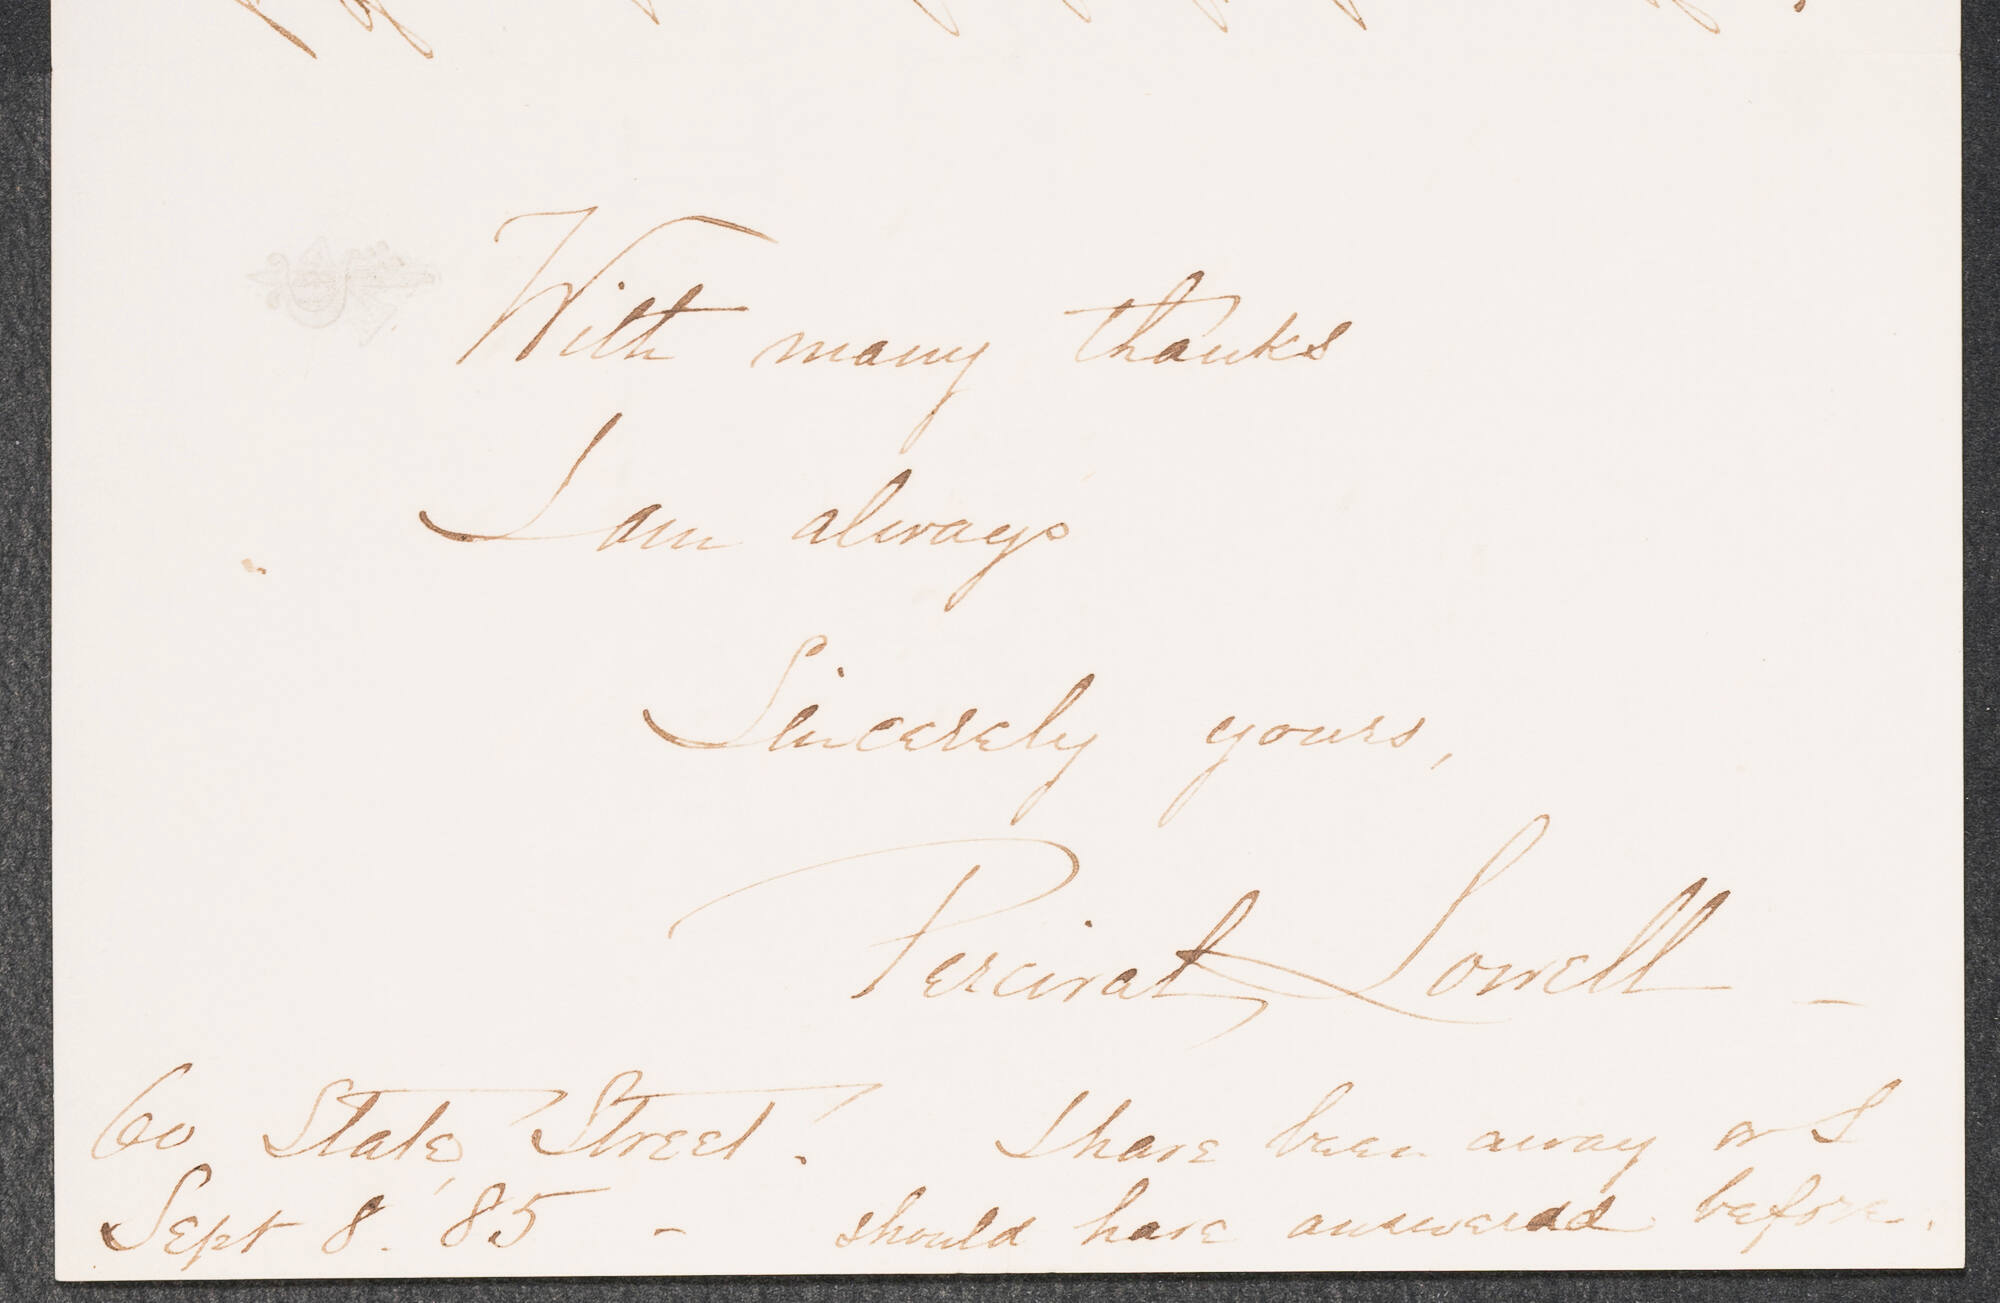 With many thanks
I am always
Sincerely yours,
Percival Lowell –
60 State Street. I have been away or I
Sept 8. '85 – should have answered before.